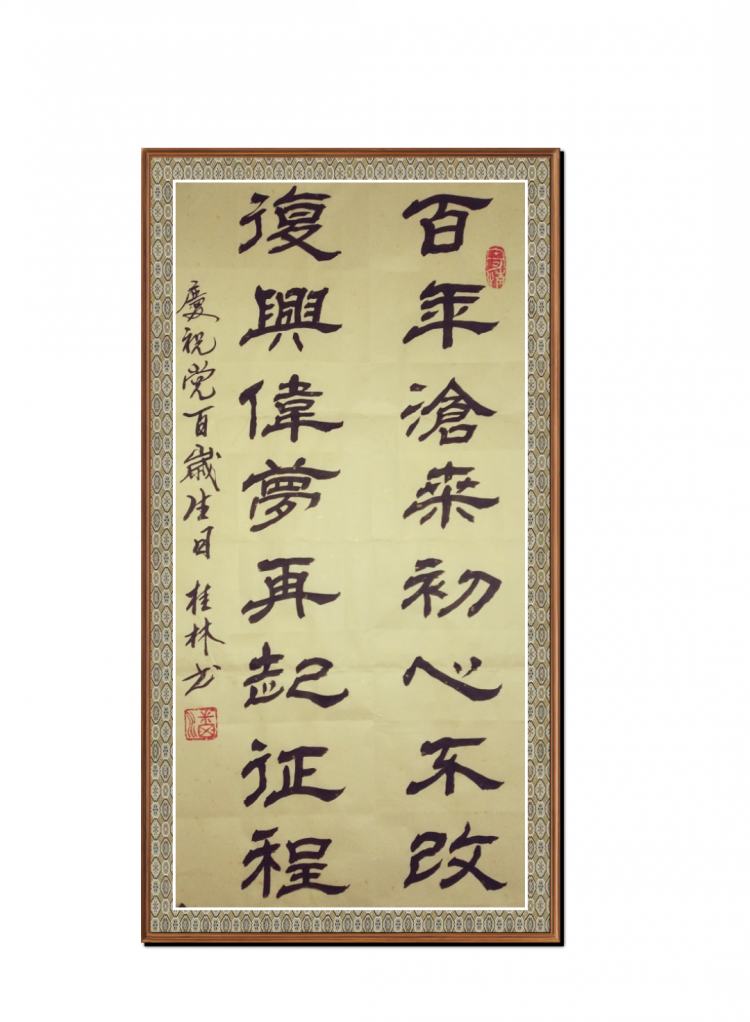 百年滄桒初心不改
復興偉夢再起征程
慶祝党百歲生日 桂林书
潘